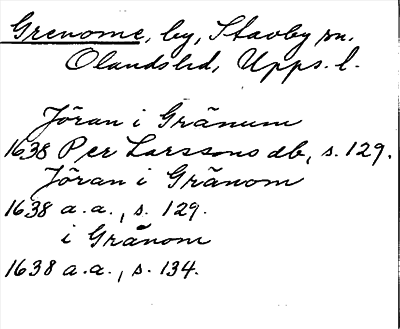 Grenome, by, Stavby sn.
Olandshd, Upps. l.
Jöran i Gränum
1638 Per Larssons db, s. 129.
Jöran i Gränom
1638 a.a., s. 129.
i Gränom
1638 a.a., s. 134.